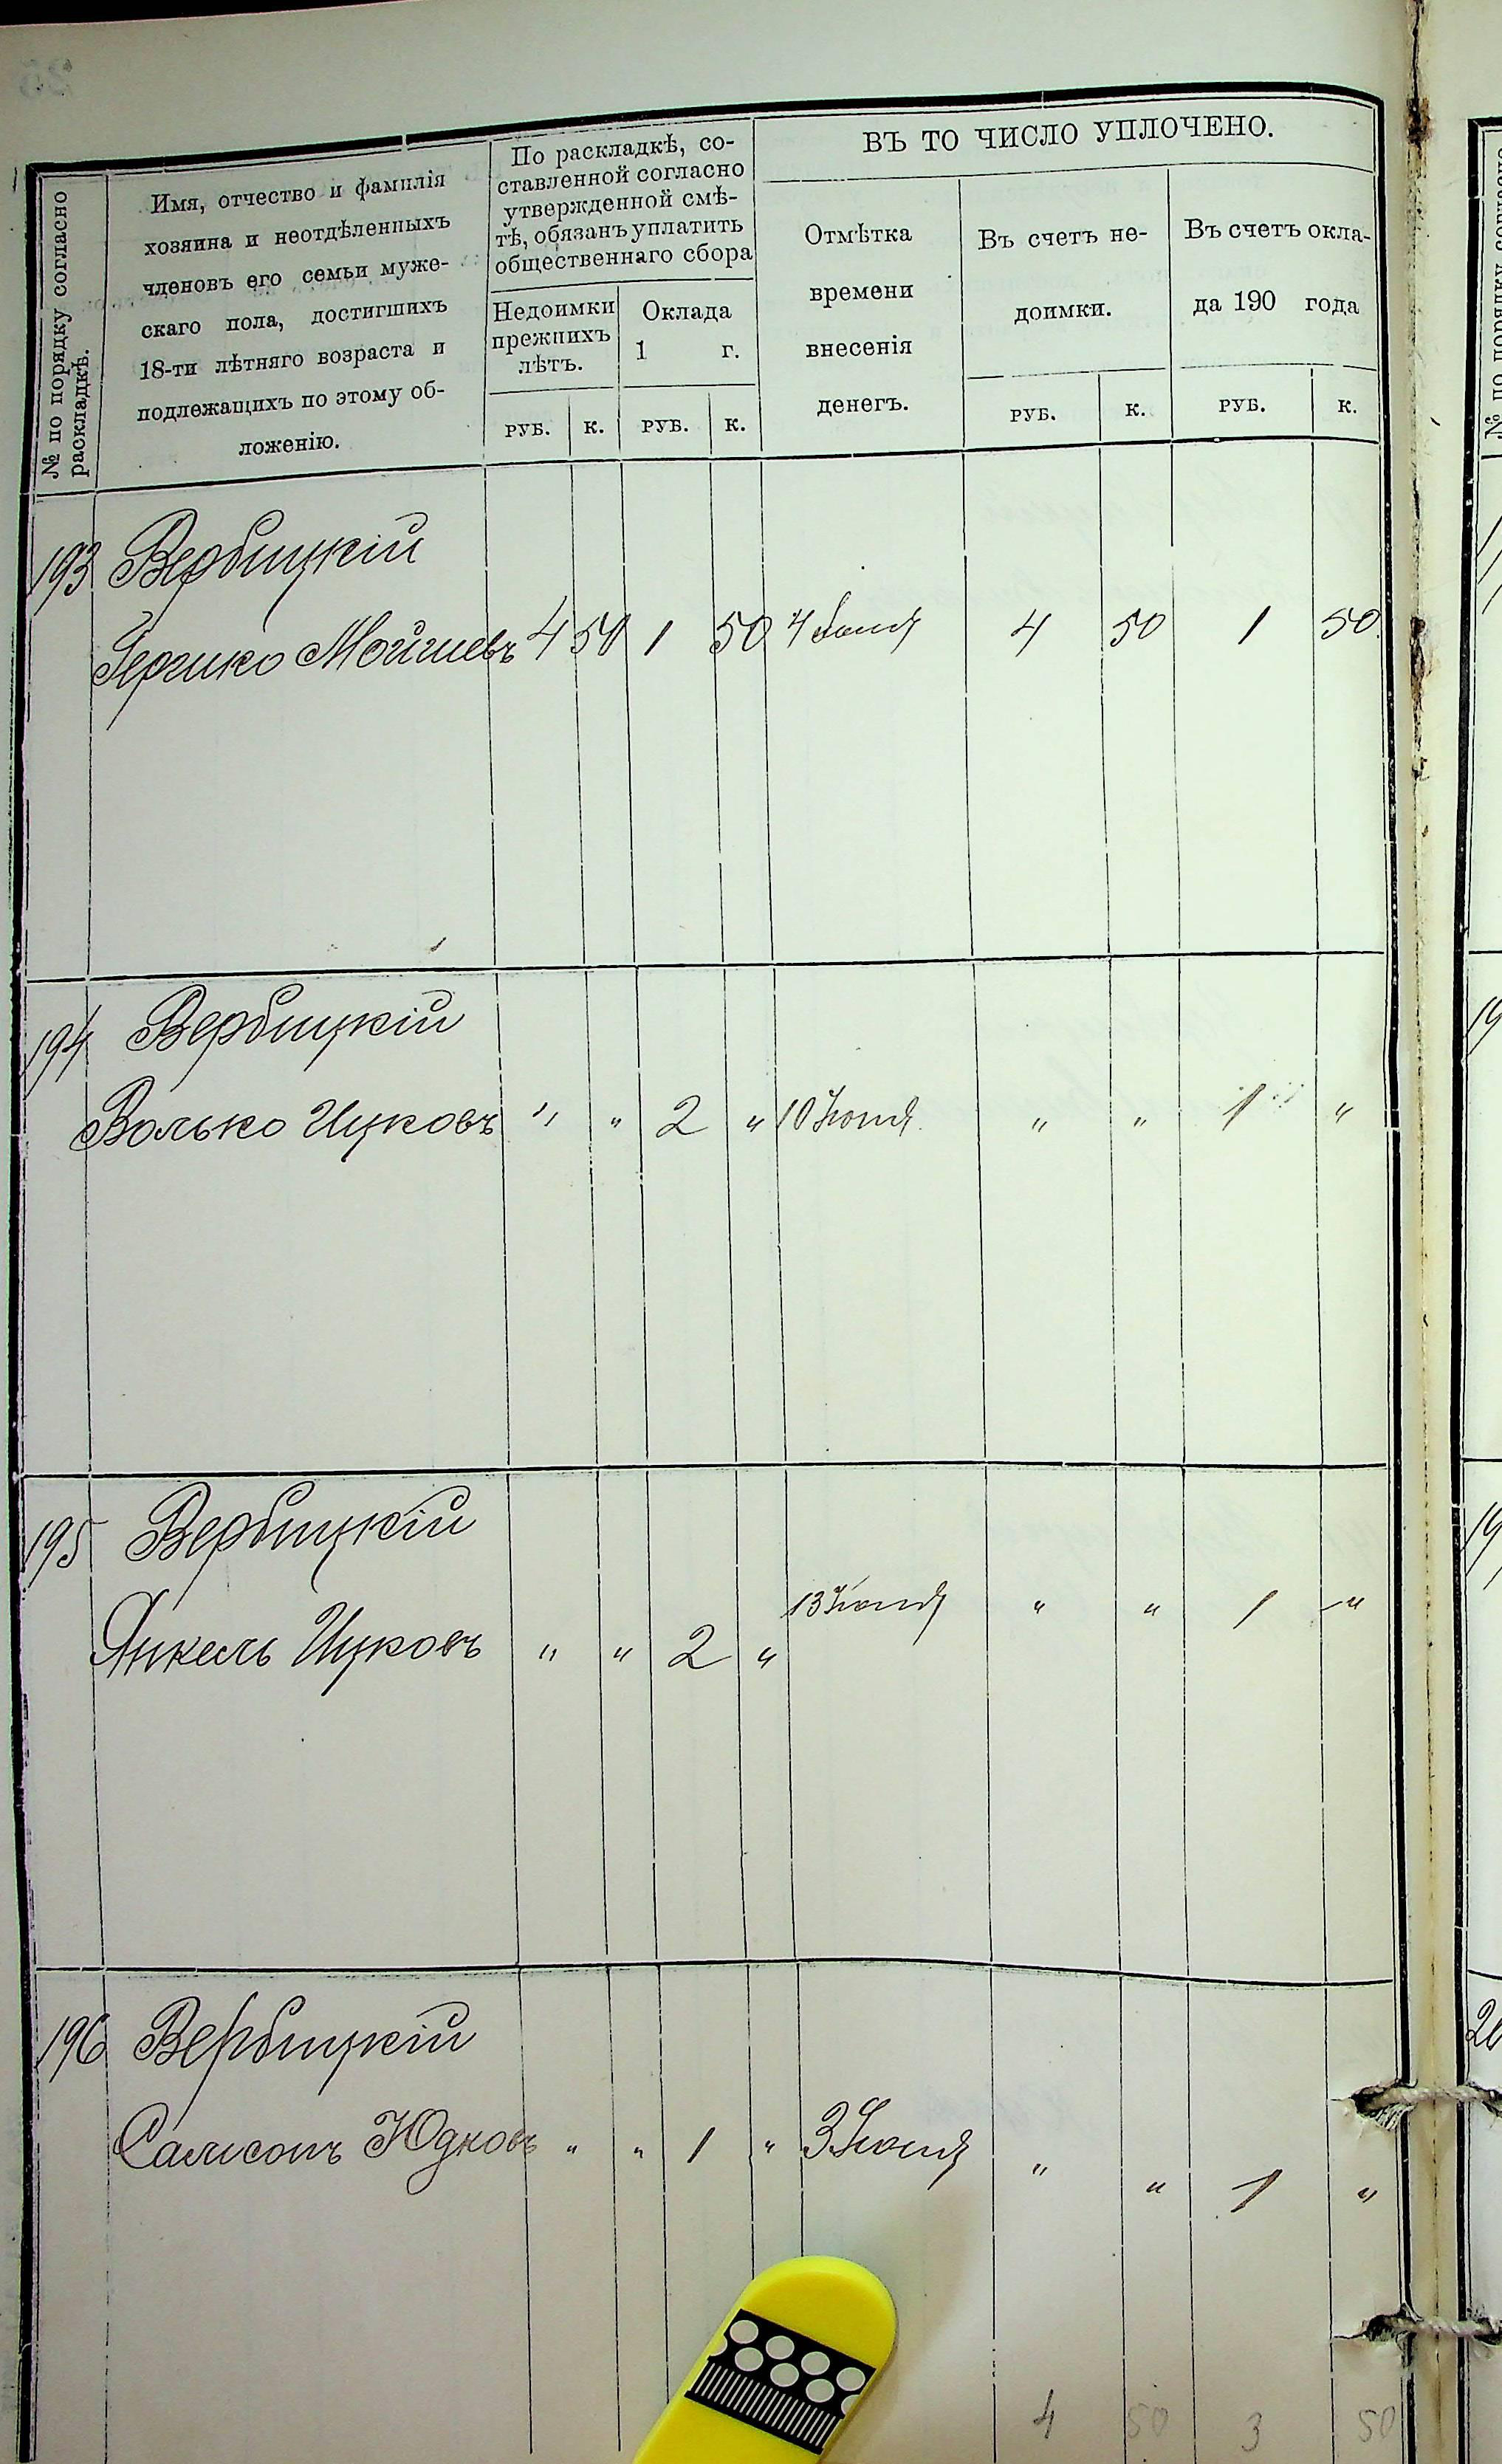 № по порядку согласно
раскладкѣ.
Имя, отчество и фамилія
хозяина и неотдѣленныхъ
членовъ его семьи муже-
скаго пола, достигшихъ
18-ти лѣтняго возраста и
подлежащихъ по этому об-
ложенію.
По раскладкѣ, со-
ставленной согласно
утвержденной смѣ-
тѣ, обязанъ уплатить
общественнаго сбора
Недоимки
прежнихъ
лѣтъ.
Оклада
1 г.
РУБ. К. РУБ. К.
ВЪ ТО ЧИСЛО УПЛОЧЕНО.
Отмѣтка
времени
внесенія
денегъ.
Въ счетъ не-
доимки.
Въ счетъ окла-
да 190 года
РУБ. К. РУБ. К.
193 Вербицкій
Гершко Мойшевъ 4 50 1 50 4 Іюня 4 50 1 50
194 Вербицкій
Волько Ицковъ " " 2 " 10 Іюня " " 1 "
195 Вербицкій
Янкель Ицковъ " " 2 " 13 Іюня " " 1 "
196 Вербицкій
Самсонъ Юдковъ " " 1 " 3 Іюня " " 1 "
4 50 3 50